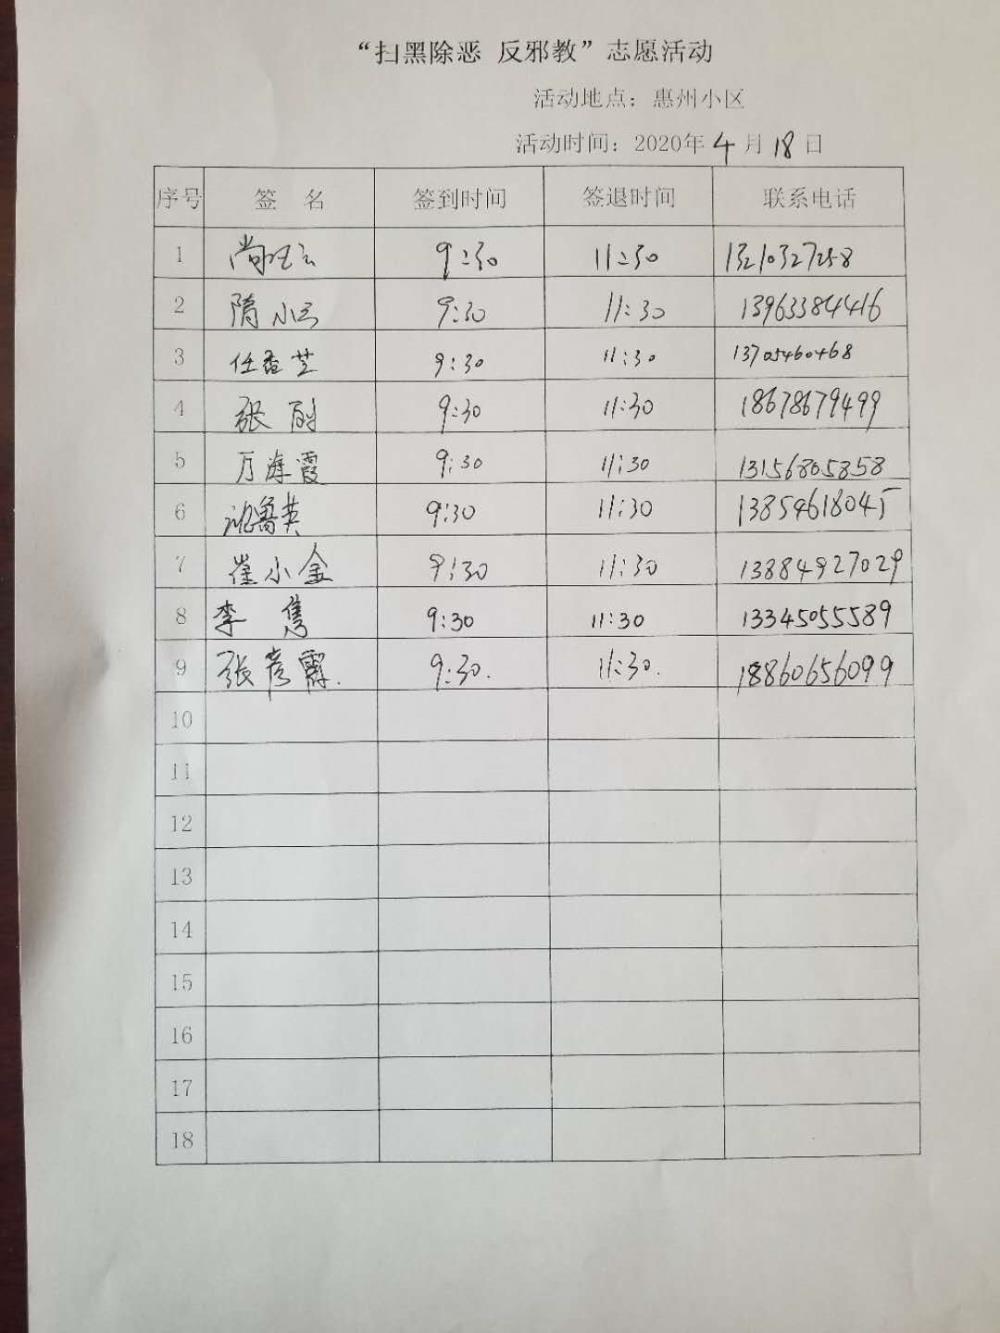 “扫黑除恶 反邪教”志愿活动
活动地点：惠州小区
活动时间：2020年4月18日
序号 签 名 签到时间 签退时间 联系电话
1 9:30 11:30 13210327258
2 隋小云 9:30 11:30 13963384416
3 任香芝 9:30 11:30 13705460468
4 张 9:30 11:30 18678679499
5 万海霞 9:30 11:30 13156805858
6 鲁英 9:30 11:30 13854618045
7 崔小金 9:30 11:30 13884927029
8 李 隽 9:30 11:30 13345055589
9 张彦霞. 9:30. 11:30. 18860656099
10
11
12
13
14
15
16
17
18